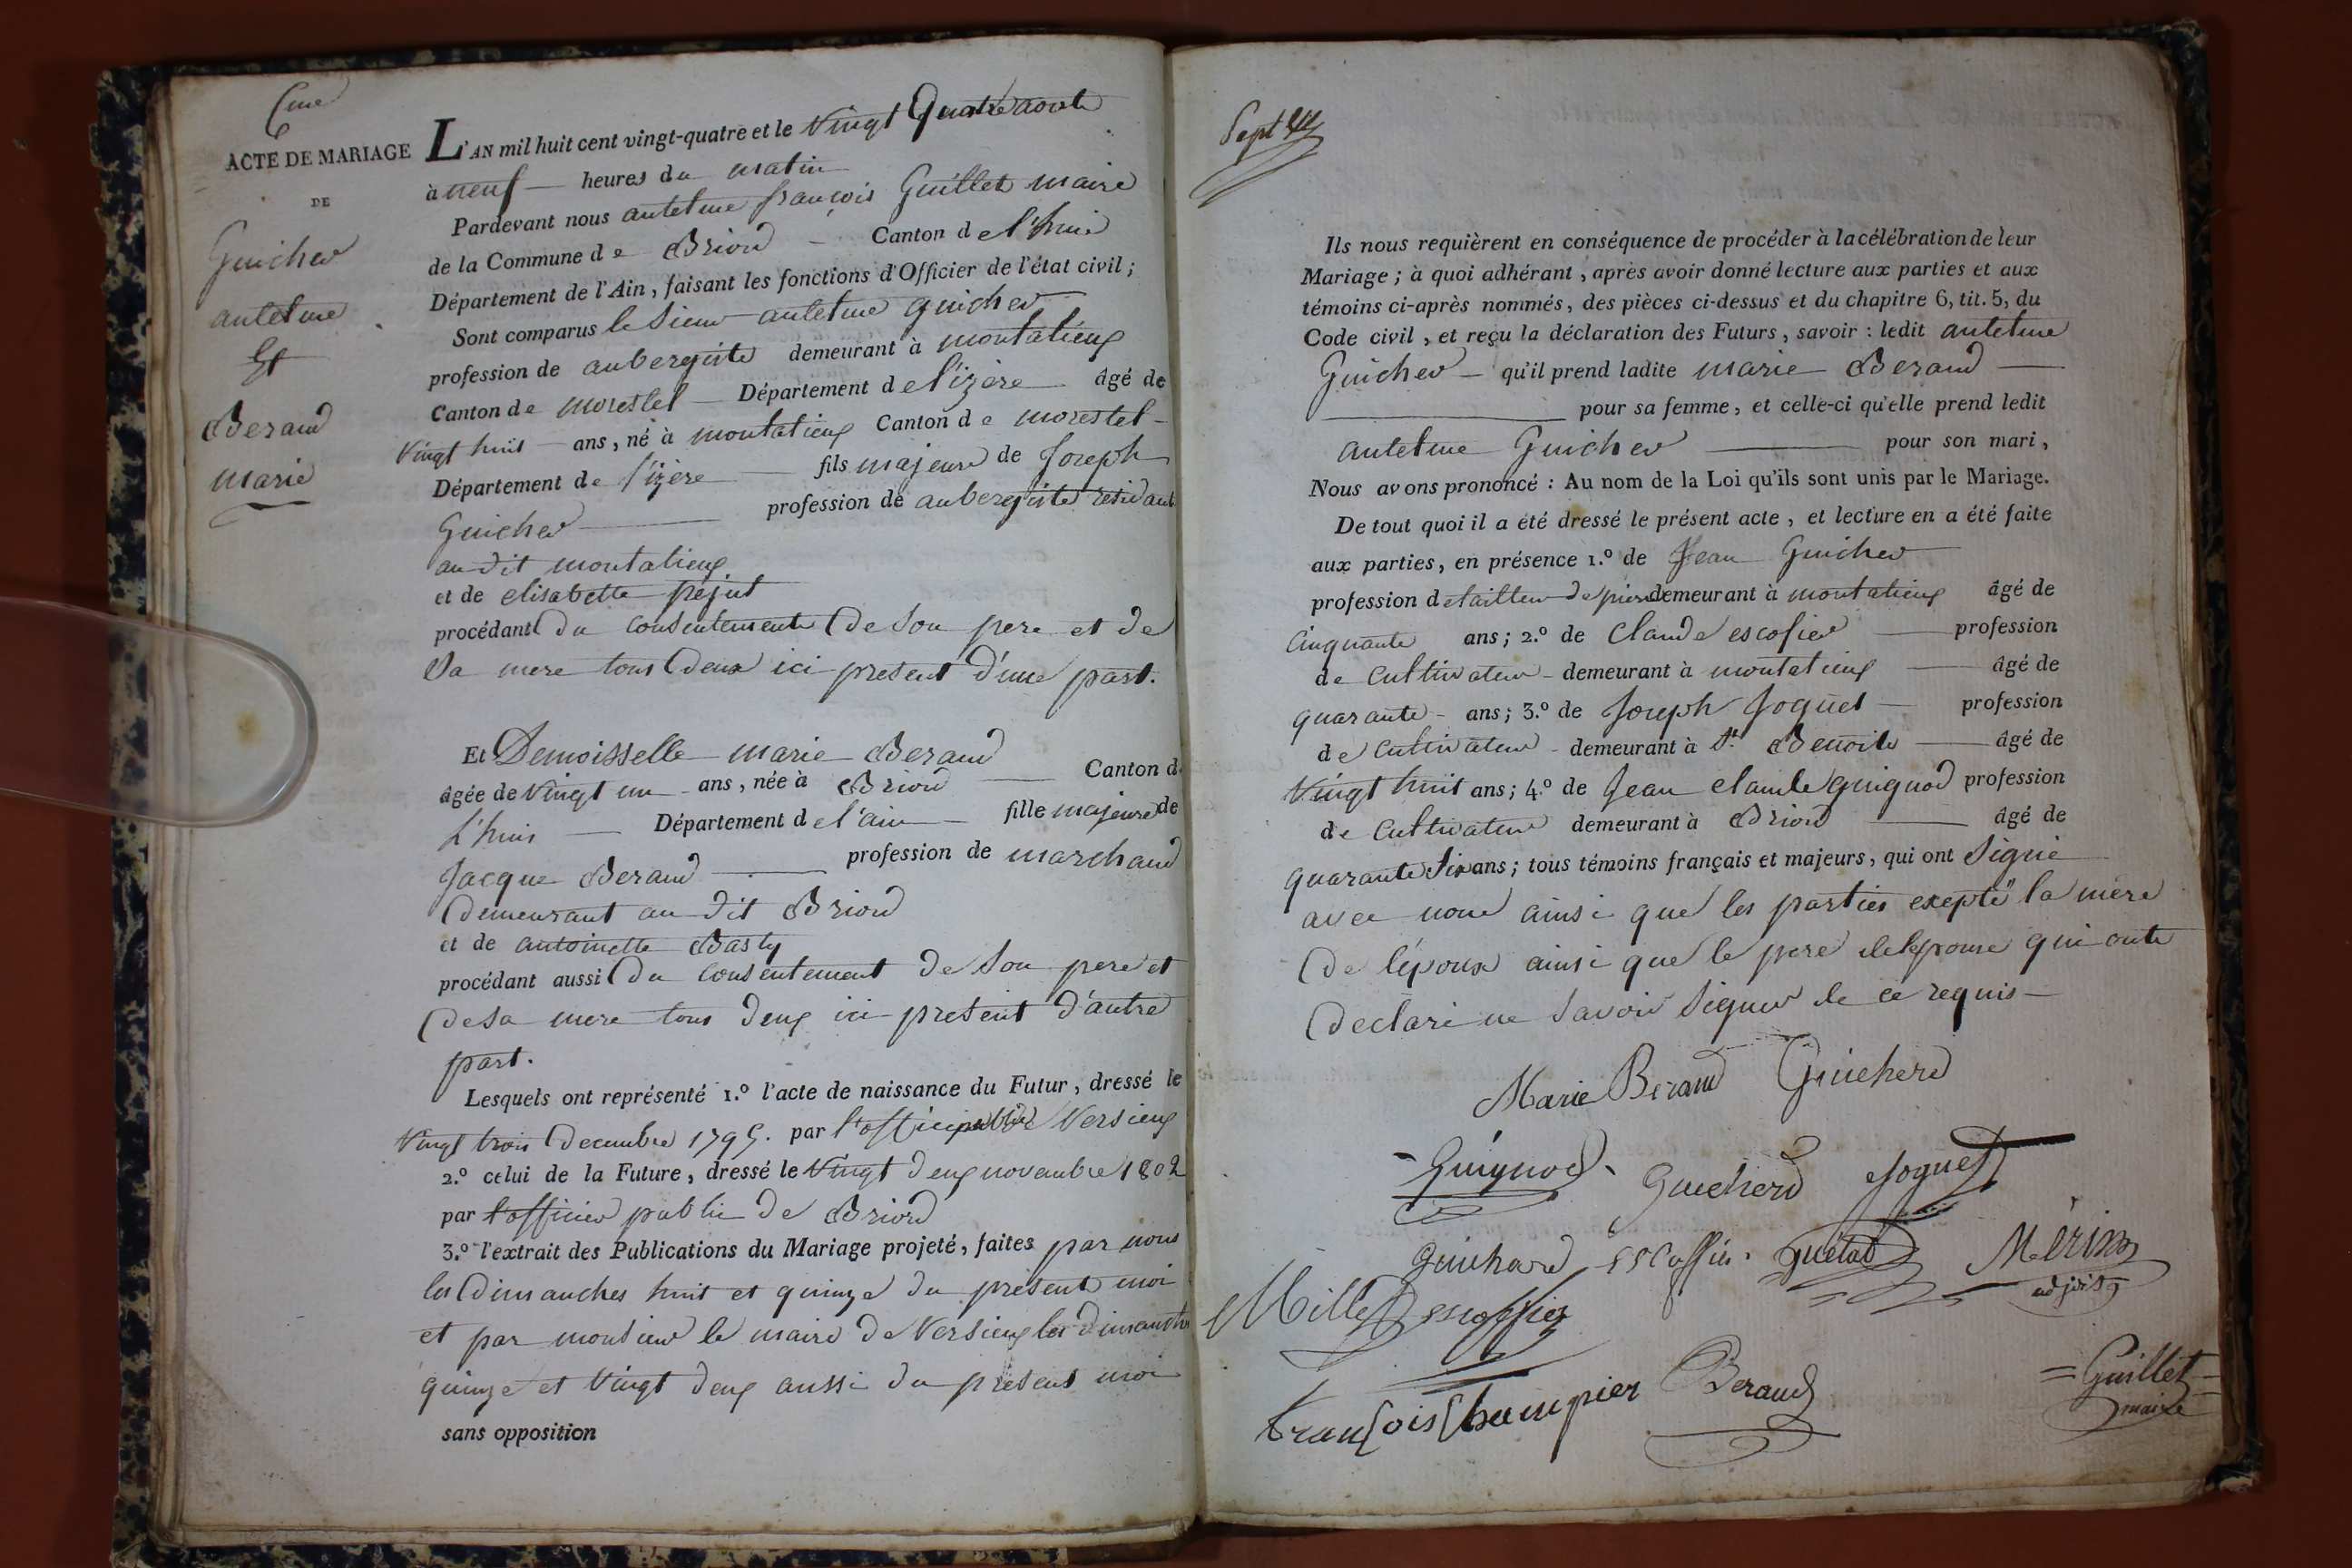 6me
ACTE DE MARIAGE
DE
Guicher
antelme
Et
Beraud
marie
L'AN mil huit cent vingt-quatre et le vingt Quatre aoute
à neuf heures du matin
Pardevant nous antelme françois Guillet maire
de la Commune de Briord Canton de l'huis
Département de l'Ain, faisant les fonctions d'Officier de l'état civil;
Sont comparus le Sieur antelme guicher
profession de aubergiste demeurant à montalieux
Canton de morestel Département de l'izère âgé de
vingt huit ans, né à montalieux Canton de morestel
Département de l'izère fils majeure de Joseph
Guicher profession de aubergiste residant
au dit montalieux
et de elisabette préjut
procédant du consentement de son pere et de
Sa mere tous deux ici present d'une part.
Et Demoisselle marie Beraud
âgée de vingt un ans, née à Briord Canton d
L'huis Département de l'ain fille majeure de
Jacque Beraud profession de marchand
demeurant au dit Briord
et de antoinette Basly
procédant aussi du consentement de son pere et
de sa mere tous deux ici present d'autre
part.
Lesquels ont représenté 1.º l'acte de naissance du Futur, dressé le
vingt trois decembre 1795. par l'offici public Versieux
2.º celui de la Future, dressé le vingt deux novembre 1802
par l'officier public de Briord
3.º l'extrait des Publications du Mariage projeté, faites par nous
les dimanches huit et quinze du présent moi
et par monsieur le maire de Versieux les dimanche
quinze et vingt deux aussi du présent moi
sans opposition
Sept
Ils nous requièrent en conséquence de procéder à la célébration de leur
Mariage; à quoi adhérant, après avoir donné lecture aux parties et aux
témoins ci-après nommés, des pièces ci-dessus et du chapitre 6, tit. 5, du
Code civil, et reçu la déclaration des Futurs, savoir : ledit antelme
Guicher qu'il prend ladite marie Beraud
pour sa femme, et celle-ci qu'elle prend ledit
antelme Guicher pour son mari,
Nous avons prononcé : Au nom de la Loi qu'ils sont unis par le Mariage.
De tout quoi il a été dressé le présent acte, et lecture en a été faite
aux parties, en présence 1.º de Jean Guicher
profession de tailleur de pierre demeurant à montalieux âgé de
Cinquante ans; 2.º de Claude escofier profession
de Cultivateur demeurant à montalieux âgé de
quarante ans; 3.º de Joseph Joquet profession
de cultivateur demeurant à St Benoite âgé de
vingt huit ans; 4.º de Jean claude guignod profession
de Cultivateur demeurant à Briord âgé de
quarante Six ans; tous témoins français et majeurs, qui ont Signé
avec nous ainsi que les parties exepté la mère
de l'époux ainsi que le pere de lepouse qui onte
declaré ne savoir signer de ce requis
Marie Beraud Guicherd
Guignod Guicherd Joguet
Guichard escoffier Guétat Mérin
adjoit
Millet escoffier
François Champier Beraud
Guillet
maire